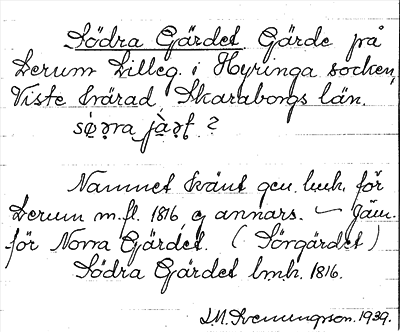 Södra Gärdet Gärde på
Lerum Lilleg. i Hyringa socken,
Viste härad, Skaraborgs län.
Namnet känt gen. lmk. för
Lerum m.fl. 1816, ej annars. — Jäm-
för Norra Gärdet. (Sörgärdet)
Södra Gärdet lmk. 1816.
J.M. Svenungson. 1939.